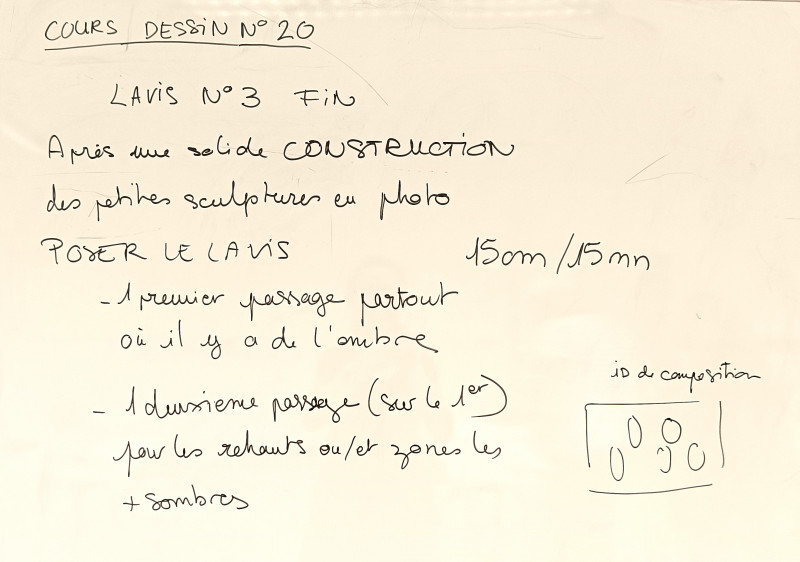 COURS DESSIN N° 20
LAVIS N° 3 FIN
Après une solide CONSTRUCTION
des petites sculptures en photo
POSER LE LAVIS
15cm/15mn
- 1 premier passage partout
où il y a de l'ombre
- 1 deuxième passage (sur le 1er)
pour les rehauts ou/et zones les
+ sombres
iD de composition